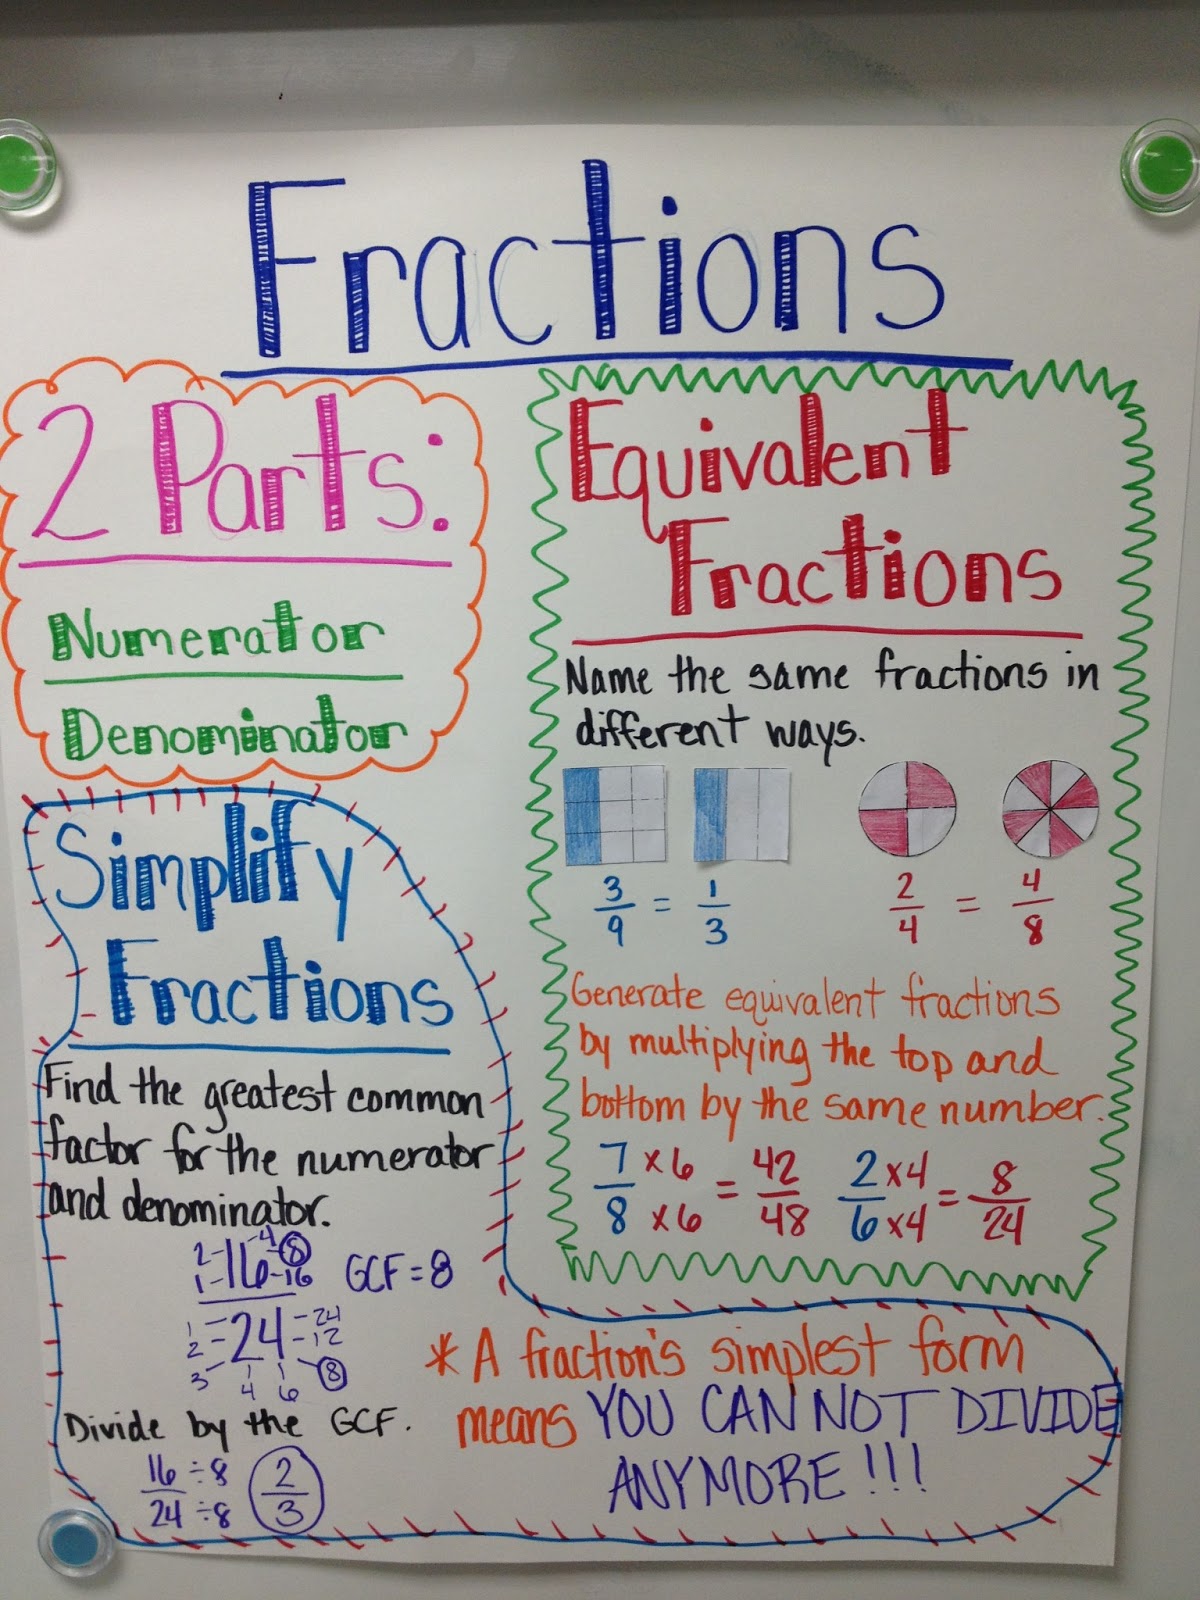 Fractions
2 Parts:
Numerator
Denominator
Equivalent
Fractions
Name the same fractions in
different ways.
3/9 = 1/3
2/4 = 4/8
Generate equivalent fractions
by multiplying the top and
bottom by the same number.
7/8 x6 x6 = 42/48
2/6 x4 x4 = 8/24
Simplify
Fractions
Find the greatest common
factor for the numerator
and denominator.
2 - 16 - 4 - 8
1 - 16 - 16
GCF = 8
1 - 24 - 24
2 - 24 - 12
3 4 6 8
Divide by the GCF.
16 ÷ 8 2
24 ÷ 8 3
* A fraction's simplest form
means YOU CAN NOT DIVIDE
ANYMORE!!!